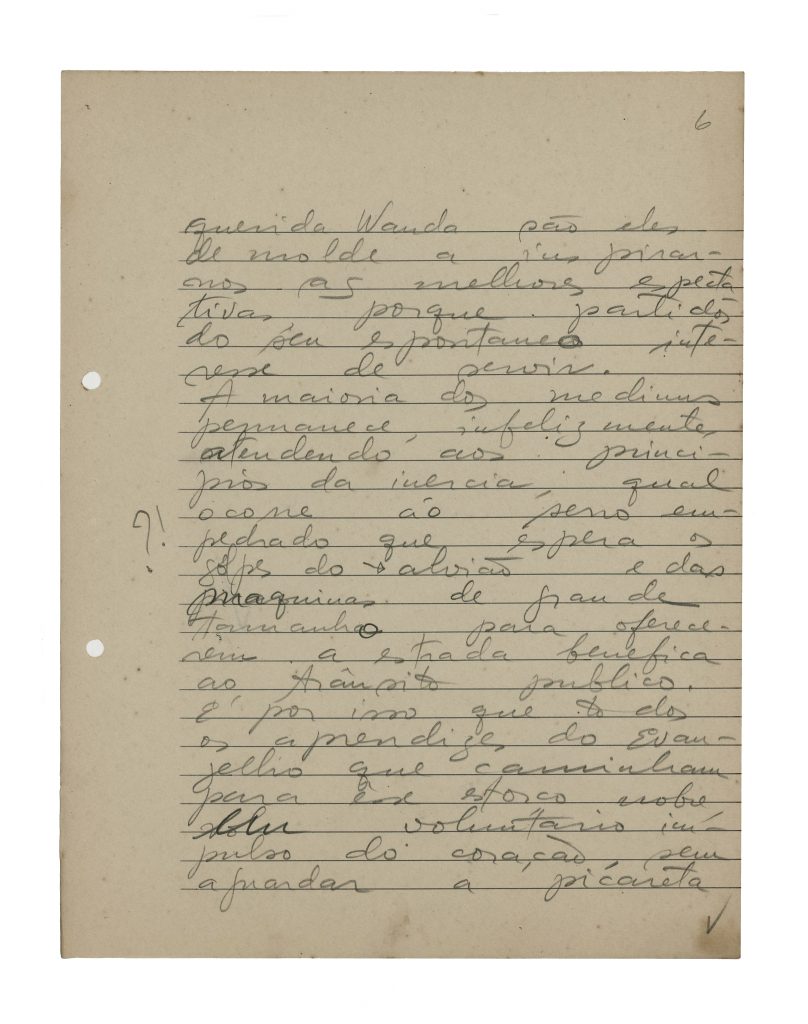 6
querida Wanda são eles
de molde a inspirar-
nos as melhores especta
tivas porque partidos
do seu espontaneo inte-
resse de servir.
A maioria dos mediuns
permanece, infelizmente,
atendendo aos princi-
pios da inercia, qual
ocorre ao serro em-
?!
pedrado que espera os
golpes do alvião e das
maquinas de grande
tamanho para oferece-
rem a estrada benefica
ao trânsito publico.
É por isso que todos
os aprendizes do Evan-
gelho que caminham
para êsse esforço nobre
voluntário im-
pulso do coração, sem
aguardar a picareta